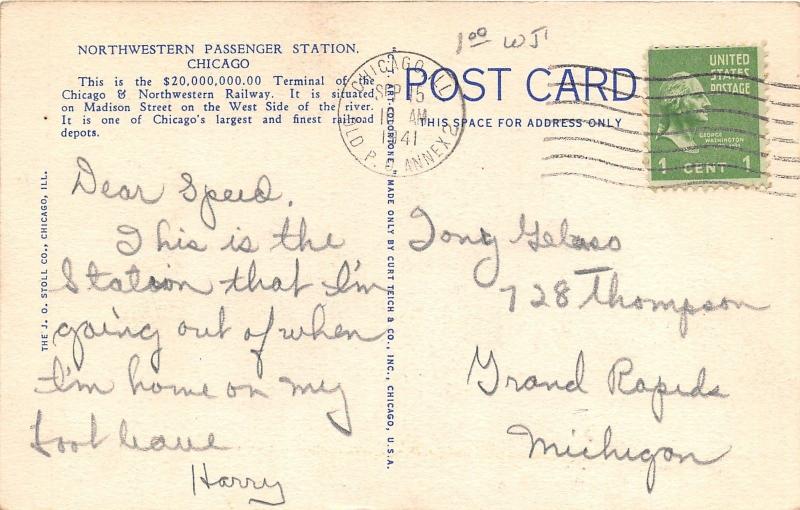 1⁰⁰ WJ
NORTHWESTERN PASSENGER STATION,
CHICAGO
This is the $20,000,000.00 Terminal of the
Chicago & Northwestern Railway. It is situated
on Madison Street on the West Side of the river.
It is one of Chicago's largest and finest railroad
depots.
Dear Speed,
This is the
Station that I'm
going out of when
I'm home on my
foot leave
Harry
THE J. O. STOLL CO., CHICAGO, ILL.
CHICAGO, ILL
SEP 15
AM
1941
OLD P.O. ANNEX
C. T. ART-COLORTONE. MADE ONLY BY CURT TEICH & CO., INC., CHICAGO, U.S.A.
POST CARD
THIS SPACE FOR ADDRESS ONLY
UNITED
STATES
POSTAGE
GEORGE
WASHINGTON
1 CENT 1
Tony Gelaso
728 Thompson
Grand Rapids
Michigan